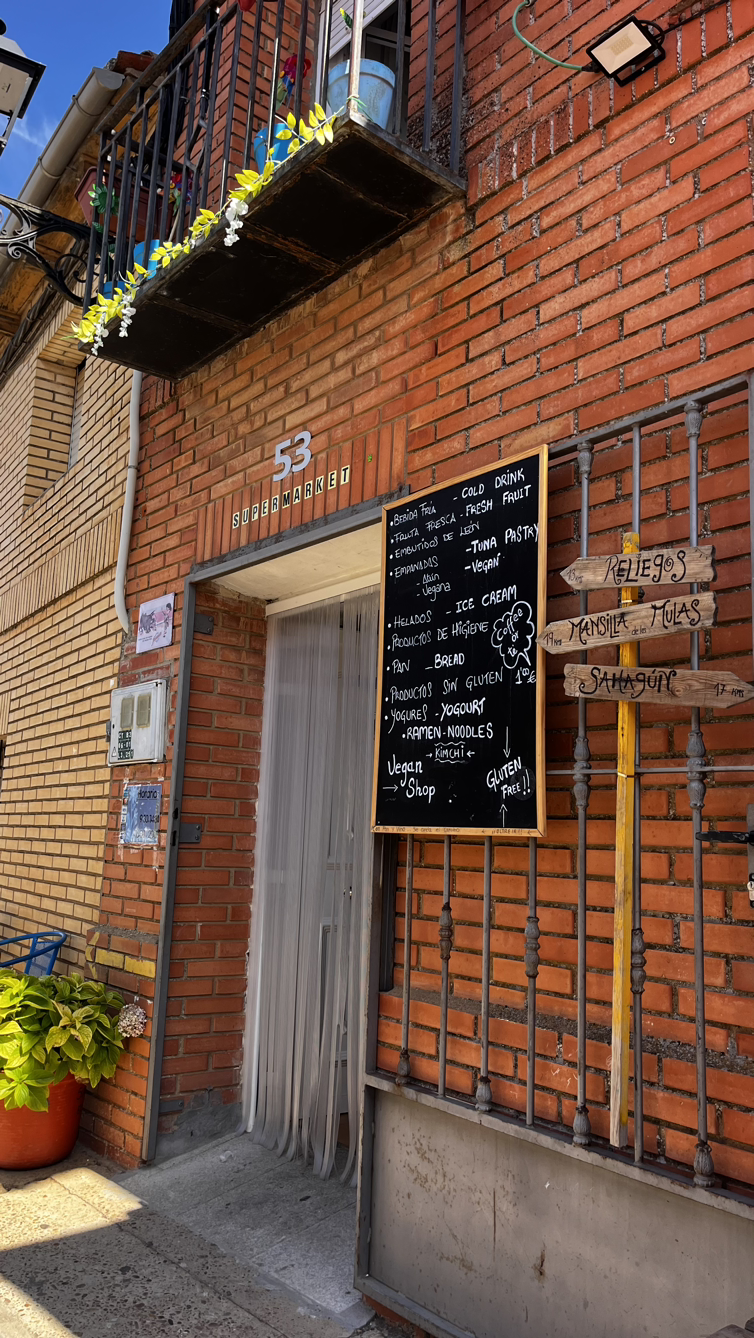 53
SUPERMARKET
• BEBIDA FRIA - COLD DRINK
• FRUTA FRESCA - FRESH FRUIT
• EMBUTIDOS DE LEÓN
• EMPANADAS - TUNA PASTRY
- Atún - VEGAN
- Vegana
• HELADOS - ICE CREAM
• PRODUCTOS DE HIGIENE
Coffee
or
té
1'00€
• PAN - BREAD
• PRODUCTOS SIN GLUTEN
• YOGURES - YOGOURT
• RAMEN-NOODLES
→ KIMCHI ←
Vegan
→ Shop
GLUTEN
FREE!!
RELIEGOS
19 KMS MANSILLA de las MULAS
SAHAGÚN 17 KMS
Horario